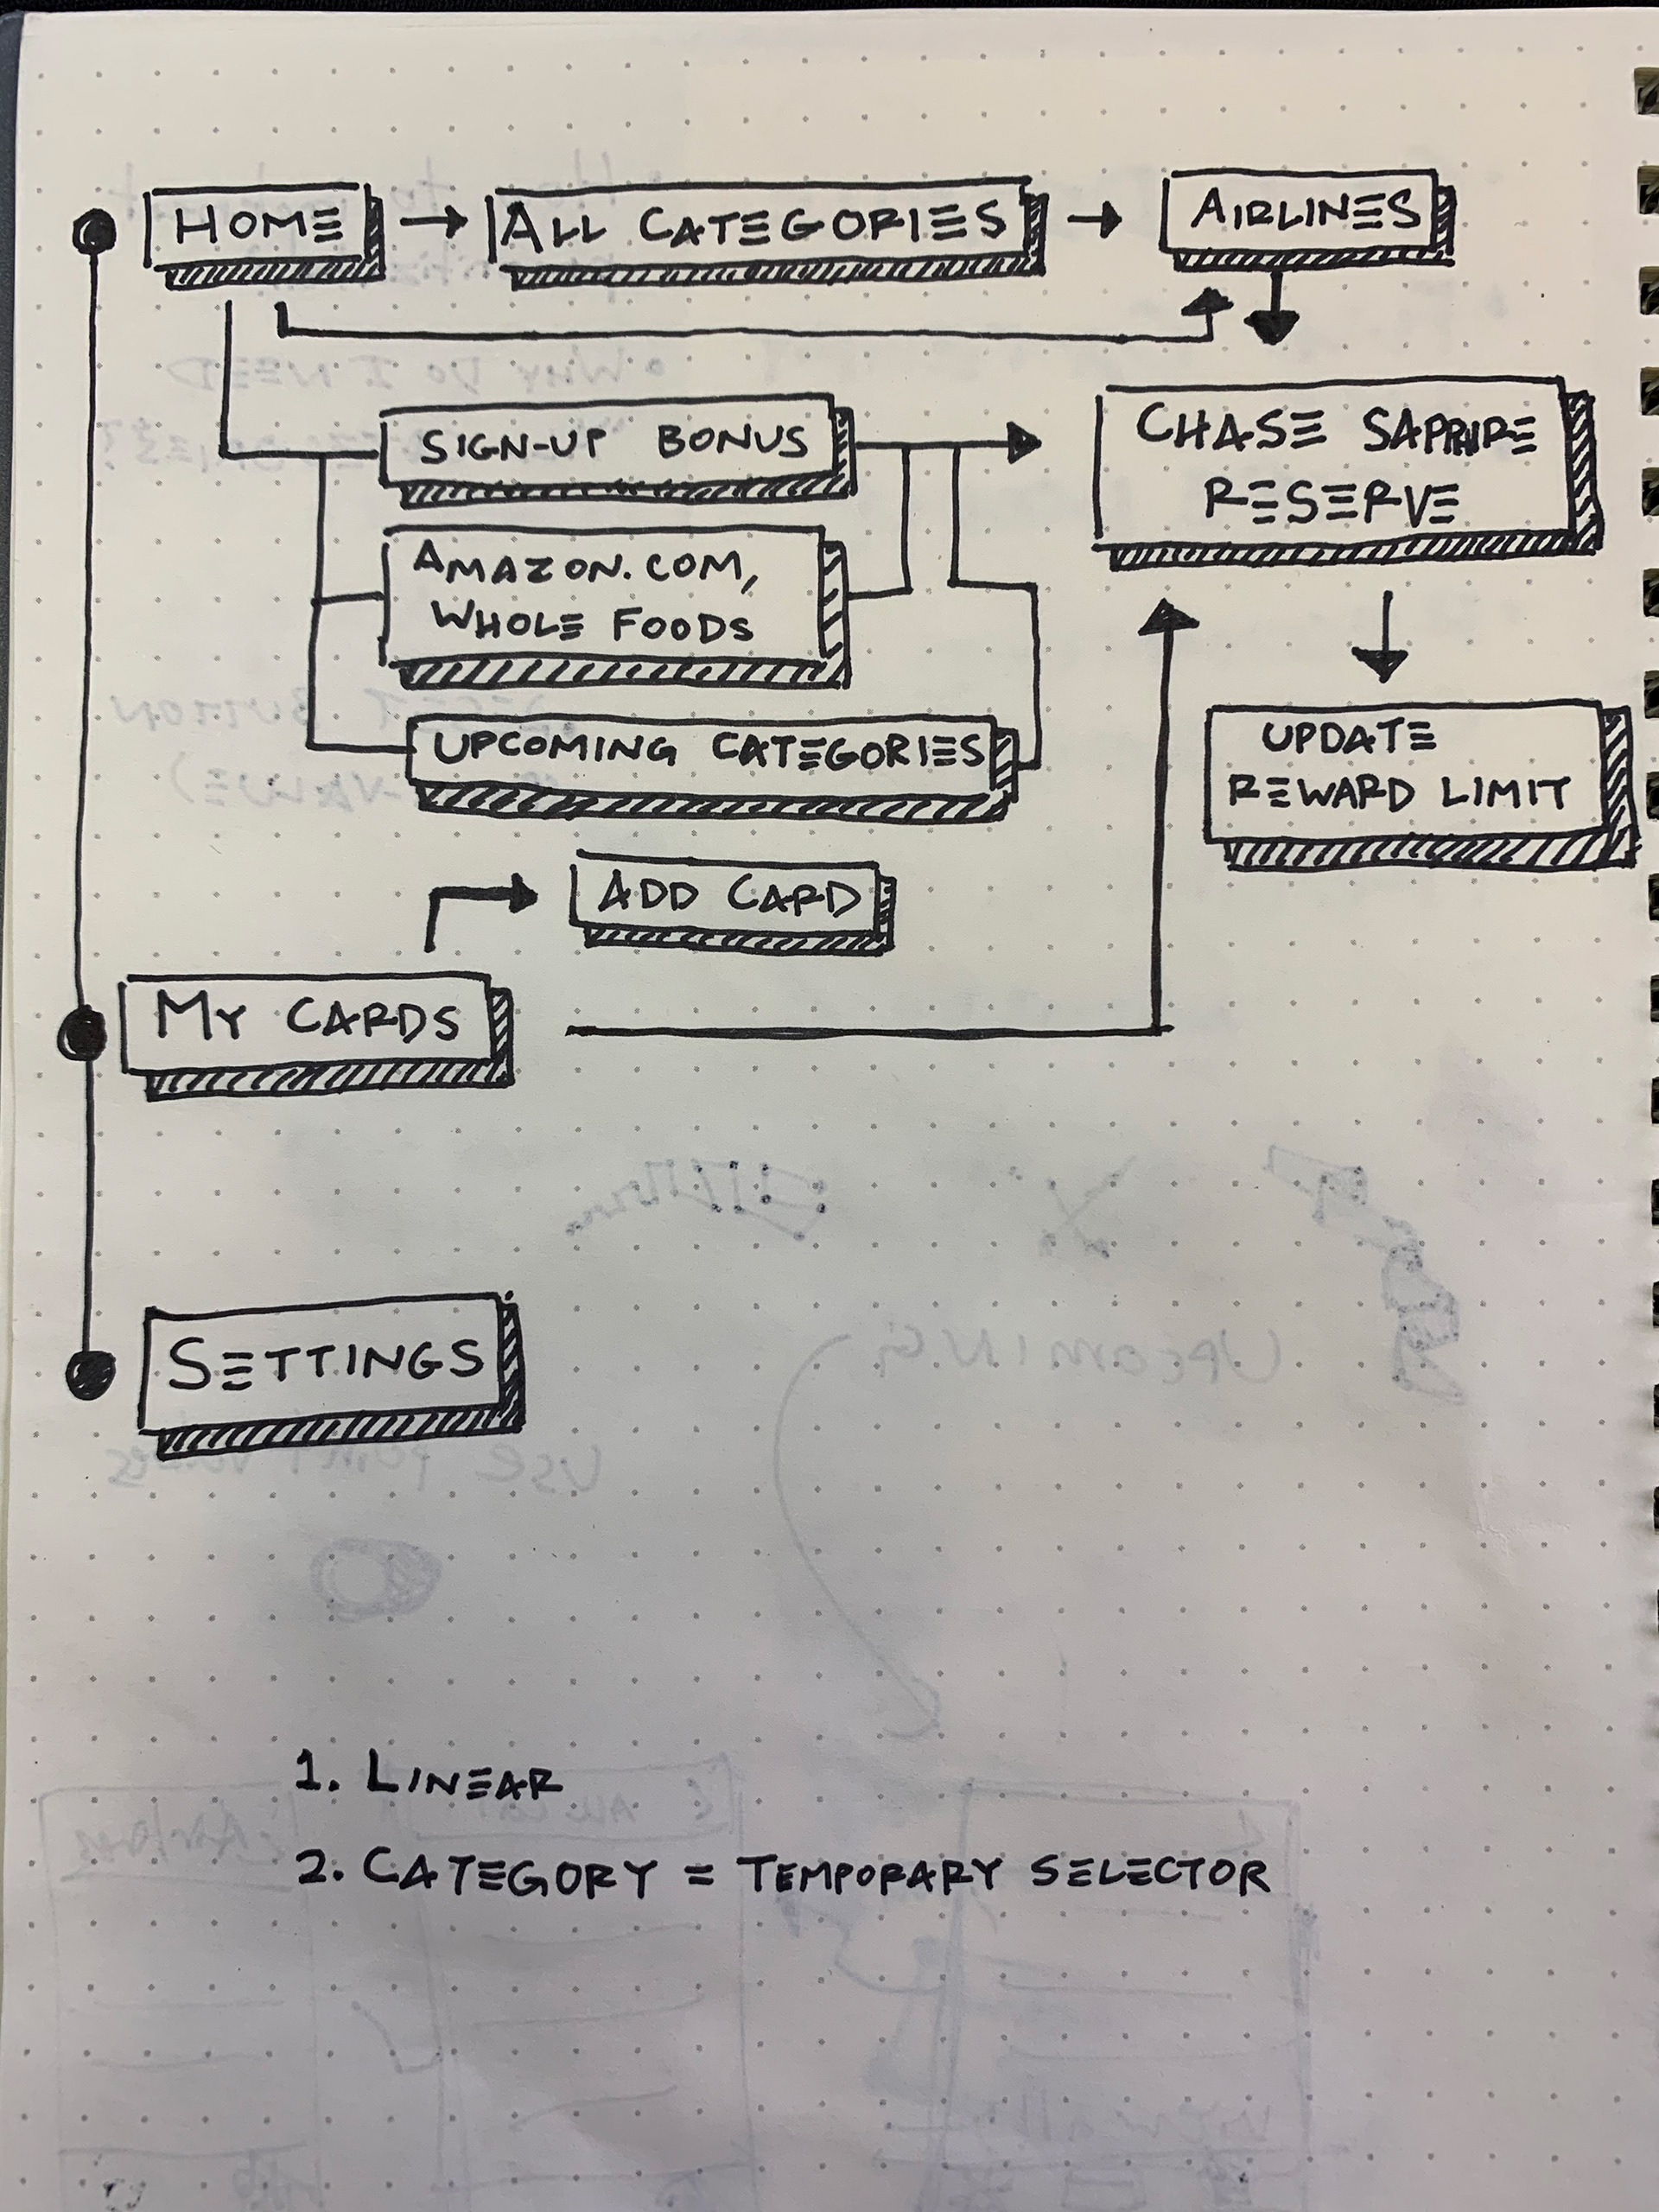 HOME
ALL CATEGORIES
AIRLINES
SIGN-UP BONUS
CHASE SAPPHIRE
RESERVE
AMAZON.COM,
WHOLE FOODS
UPCOMING CATEGORIES
UPDATE
REWARD LIMIT
ADD CARD
MY CARDS
SETTINGS
1. LINEAR
2. CATEGORY = TEMPORARY SELECTOR
WHY DO I NEED
UPCOMING